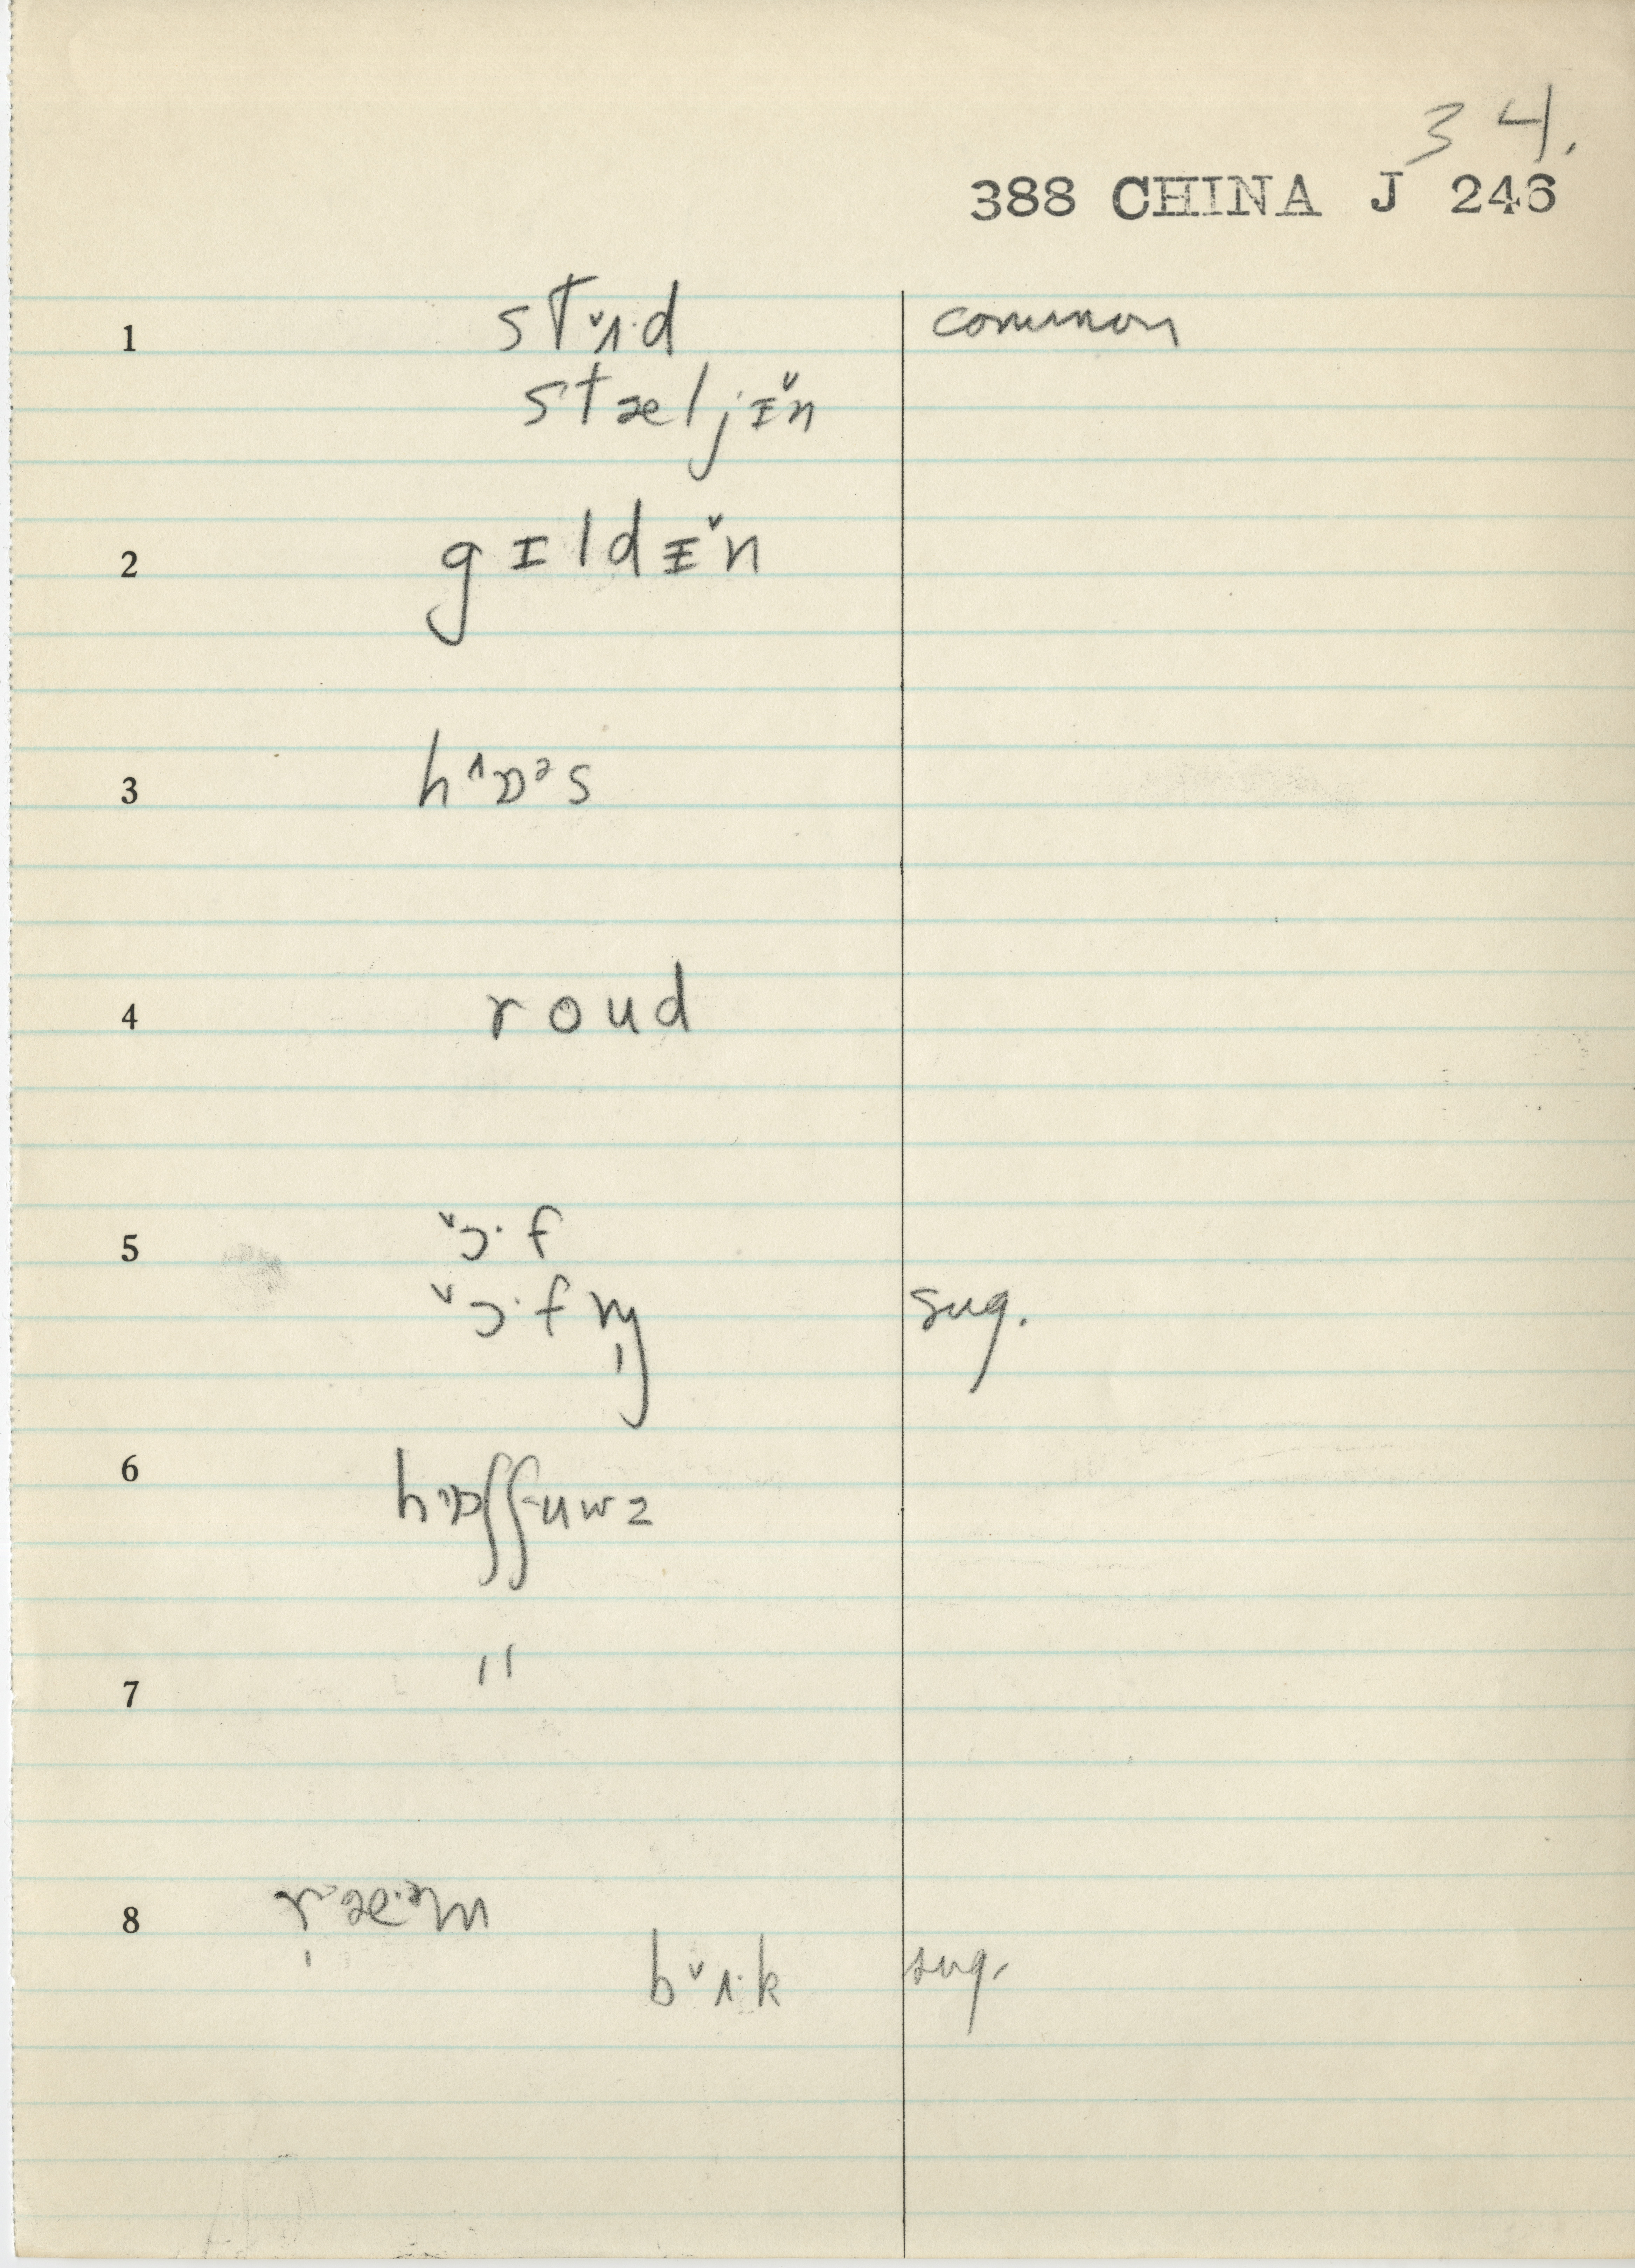 34.
388 CHINA J 246
1 st˅ʌ·d common
stæljᵻ̌n
2 gɪldᵻ̌n
3 h^ɒᵊs
4 roud
5 ˅ɔ·f
˅ɔ·fn̩ sug.
6
7 "
8
b˅ʌ·k sug.